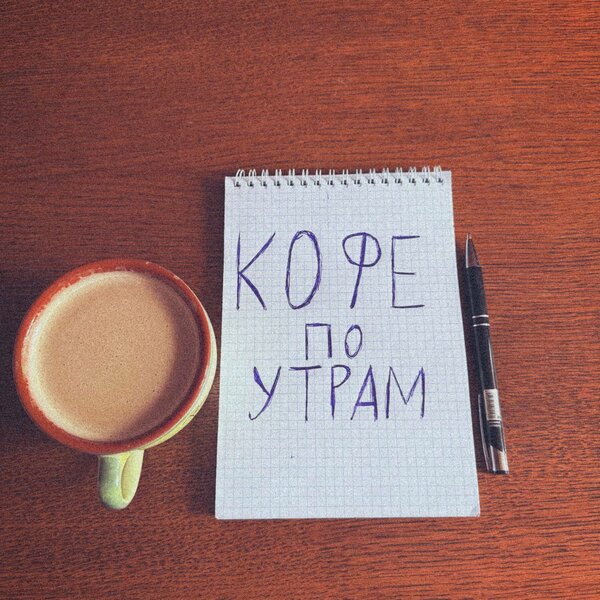 КОФЕ
ПО
УТРАМ